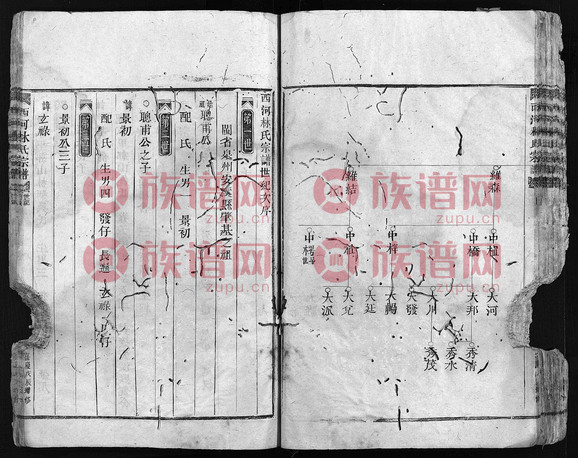 維森
維結
中植
中橋
中梓
中植
中楞
大河
大邦
大川
大發
大暢
大廷
大派
秀清
秀水
秀茂
西河林氏宗譜世紀大序
第一世
閩省泉州安溪縣肇基之祖
聰甫公
配 氏 生男一 景初
第二世
聰甫公之子
諱景初
配 氏 生男四 發仔 長
第三世
景初公三子
諱玄祿
西河林氏宗譜
族谱网
zupu.cn
族谱网
zupu.cn
族谱网
zupu.cn
族谱网
zupu.cn